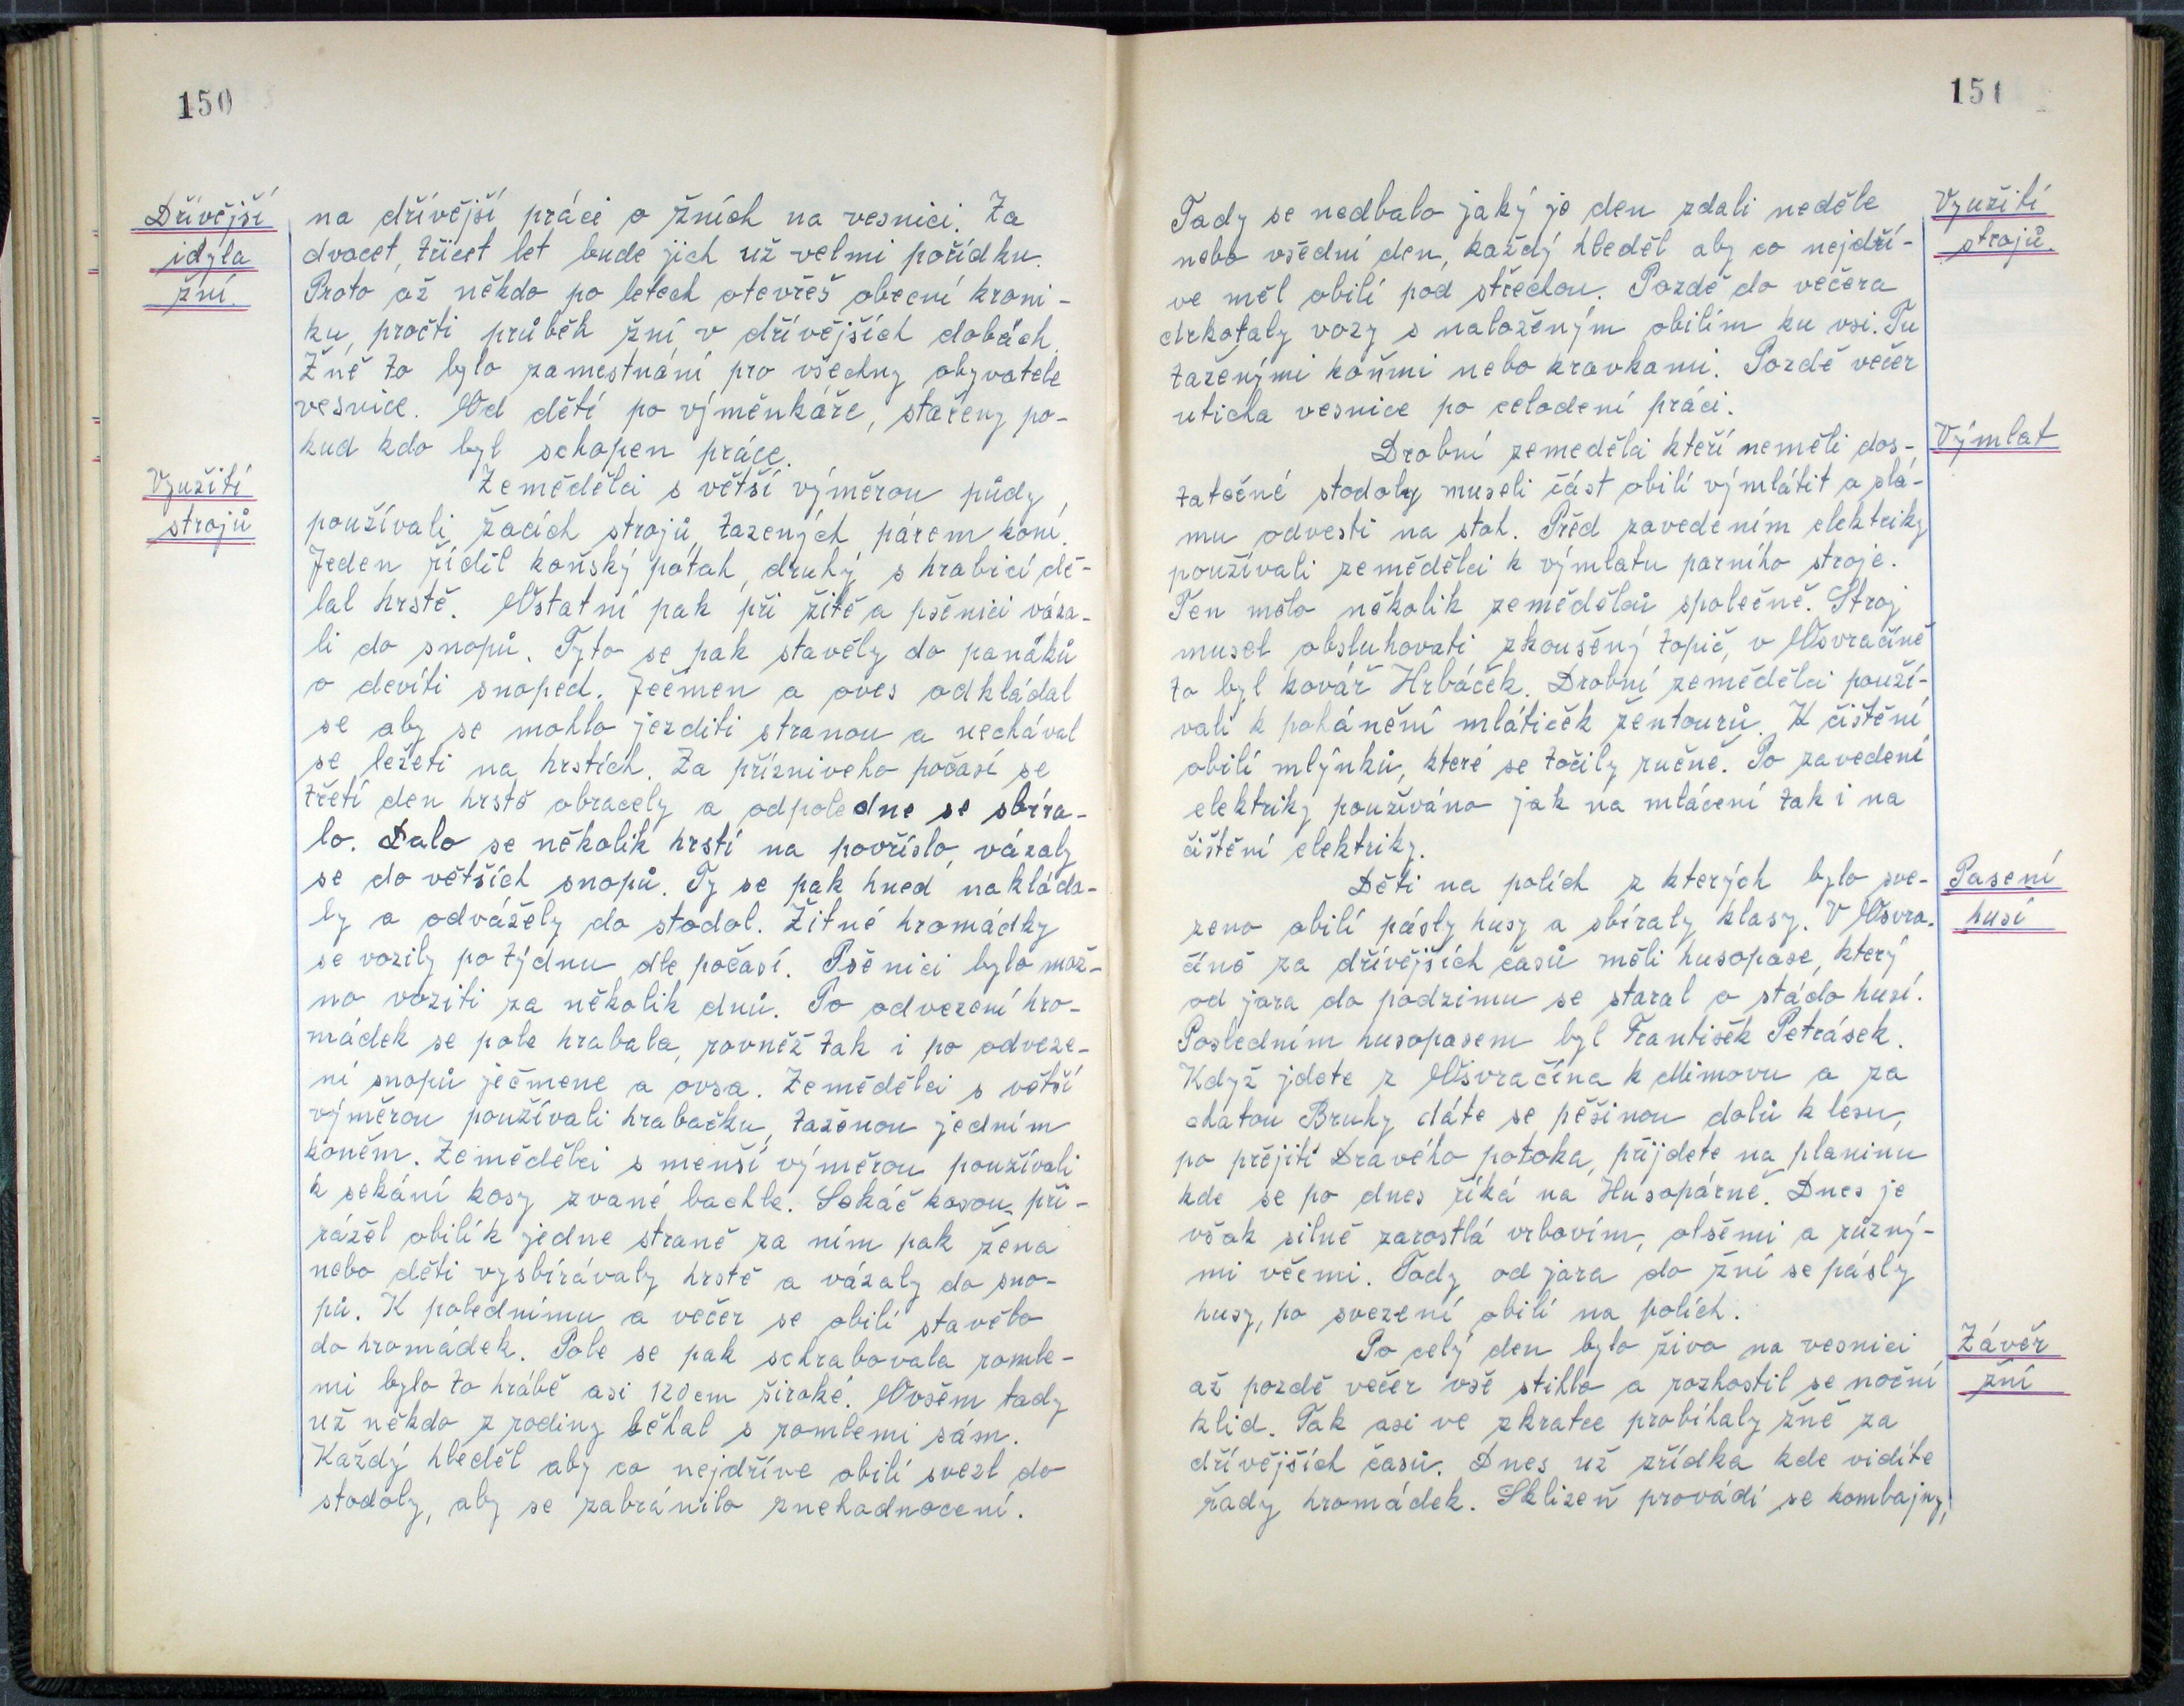 150
Dřívější
idyla
žní.
na dřívější práci o žních na vesnici. Za
dvacet, třicet let bude jich už velmi pořídku.
Proto až někdo po letech otevřeš obecní kroni-
ku, pročti průběh žní v dřívějších dobách.
Žně to bylo zamestnání pro všechny obyvatele
vesnice. Od dětí po výměnkáře, stařeny po-
kud kdo byl schopen práce.
Využití
strojů
Zemědělci s větší výměrou půdy
používali žacích strojů, tazených párem koní.
Jeden řídil koňský potah, druhý s hrabicí dě-
lal hrstě. Ostatní pak při žitě a pšenici váza-
li do snopů. Tyto se pak stavěly do panáků
o devíti snoped. Ječmen a oves odkládal
se aby se mohlo jezditi stranou a nechával
se ležeti na hrstích. Za příznivého počasí se
třetí den hrstě obracely a odpoledne se sbíra-
lo. Dalo se několik hrstí na povříslo, vázaly
se do větších snopů. Ty se pak hned nakláda-
ly a odvážely do stodol. Žitné hromádky
se vozily po týdnu dle počasí. Pšenici bylo mož-
no voziti za několik dnů. Po odvezení hro-
mádek se pole hrabala, rovněž tak i po odveze-
ní snopů ječmene a ovsa. Zemědělci s větší
výměrou používali hrabačku, taženou jedním
koněm. Zemědělci s menší výměrou používali
k sekání kosy zvané bachle. Sekáč kosou při-
rážel obilí k jedne straně za ním pak žena
nebo děti vysbírávaly hrstě a vázaly do sno-
pů. K polednímu a večer se obilí stavělo
do hromádek. Pole se pak schrabovala romle-
mi bylo to hrábě asi 120 cm široké. Ovšem tady
už někdo z rodiny běhal s romlemi sám.
Každý hleděl aby co nejdříve obilí svezl do
stodoly, aby se zabránilo znehodnocení.
151
Tady se nedbalo jaký je den zdali neděle
nebo všední den, každý hleděl aby co nejdří-
ve měl obilí pod střechou. Pozdě do večera
drkotaly vozy s naloženým obilím ku vsi. Tu
taženými koňmi nebo kravkami. Pozdě večer
uticha vesnice po celodení práci.
Využití
strojů.
Drobní zemedělci kteří neměli dos-
tatečné stodoly museli část obilí výmlátit a slá-
mu odvesti na stoh. Před zavedením elektriky
používali zemědělci k výmlatu parního stroje.
Ten mělo několik zemědělců společně. Stroj
musel obsluhovati zkoušený topič, v Osvračíně
to byl kovář Hrbáček. Drobní zemědělci použí-
vali k pohánění mlátiček žentourů. K čištění
obilí mlýnků, které se točily ručně. Po zavedení
elektriky používáno jak na mlácení tak i na
čištění elektriky.
Výmlat
Děti na polích z kterých bylo sve-
zeno obilí pásly husy a sbíraly klasy. V Osvra-
číně za dřívějších časů měli husopase, který
od jara do podzimu se staral o stádo husí.
Posledním husopasem byl František Petrásek.
Když jdete z Osvračína k Mimovu a za
chatou Bruhy dáte se pěšinou dolů k lesu,
po přejití Dravého potoka, přijdete na planinu
kde se po dnes říká na Husopárně. Dnes je
však silně zarostlá vrbovím, olšěmi a různý-
mi věcmi. Tady od jara do žní se pásly
husy, po svezení obilí na polích.
Pasení
husí
Po celý den bylo živo na vesnici
až pozdě večer vše stihlo a rozhostil se noční
klid. Tak asi ve zkratce probíhaly žně za
dřívějších časů. Dnes už zřídka kde vidíte
řady hromádek. Sklizeň provádí se kombajny,
Závěr
žní